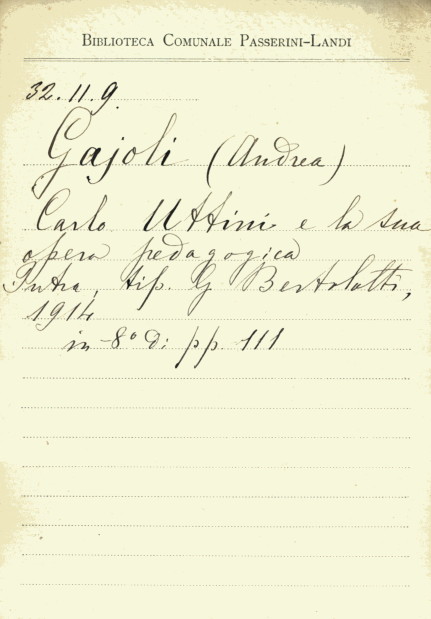 BIBLIOTECA COMUNALE PASSERINI-LANDI
32.11.9.
Gajoli (Andrea)
Carlo Uttini e la sua
opera pedagogica
Intra, tip. G Bertolotti,
1914
in-8° di pp. 111